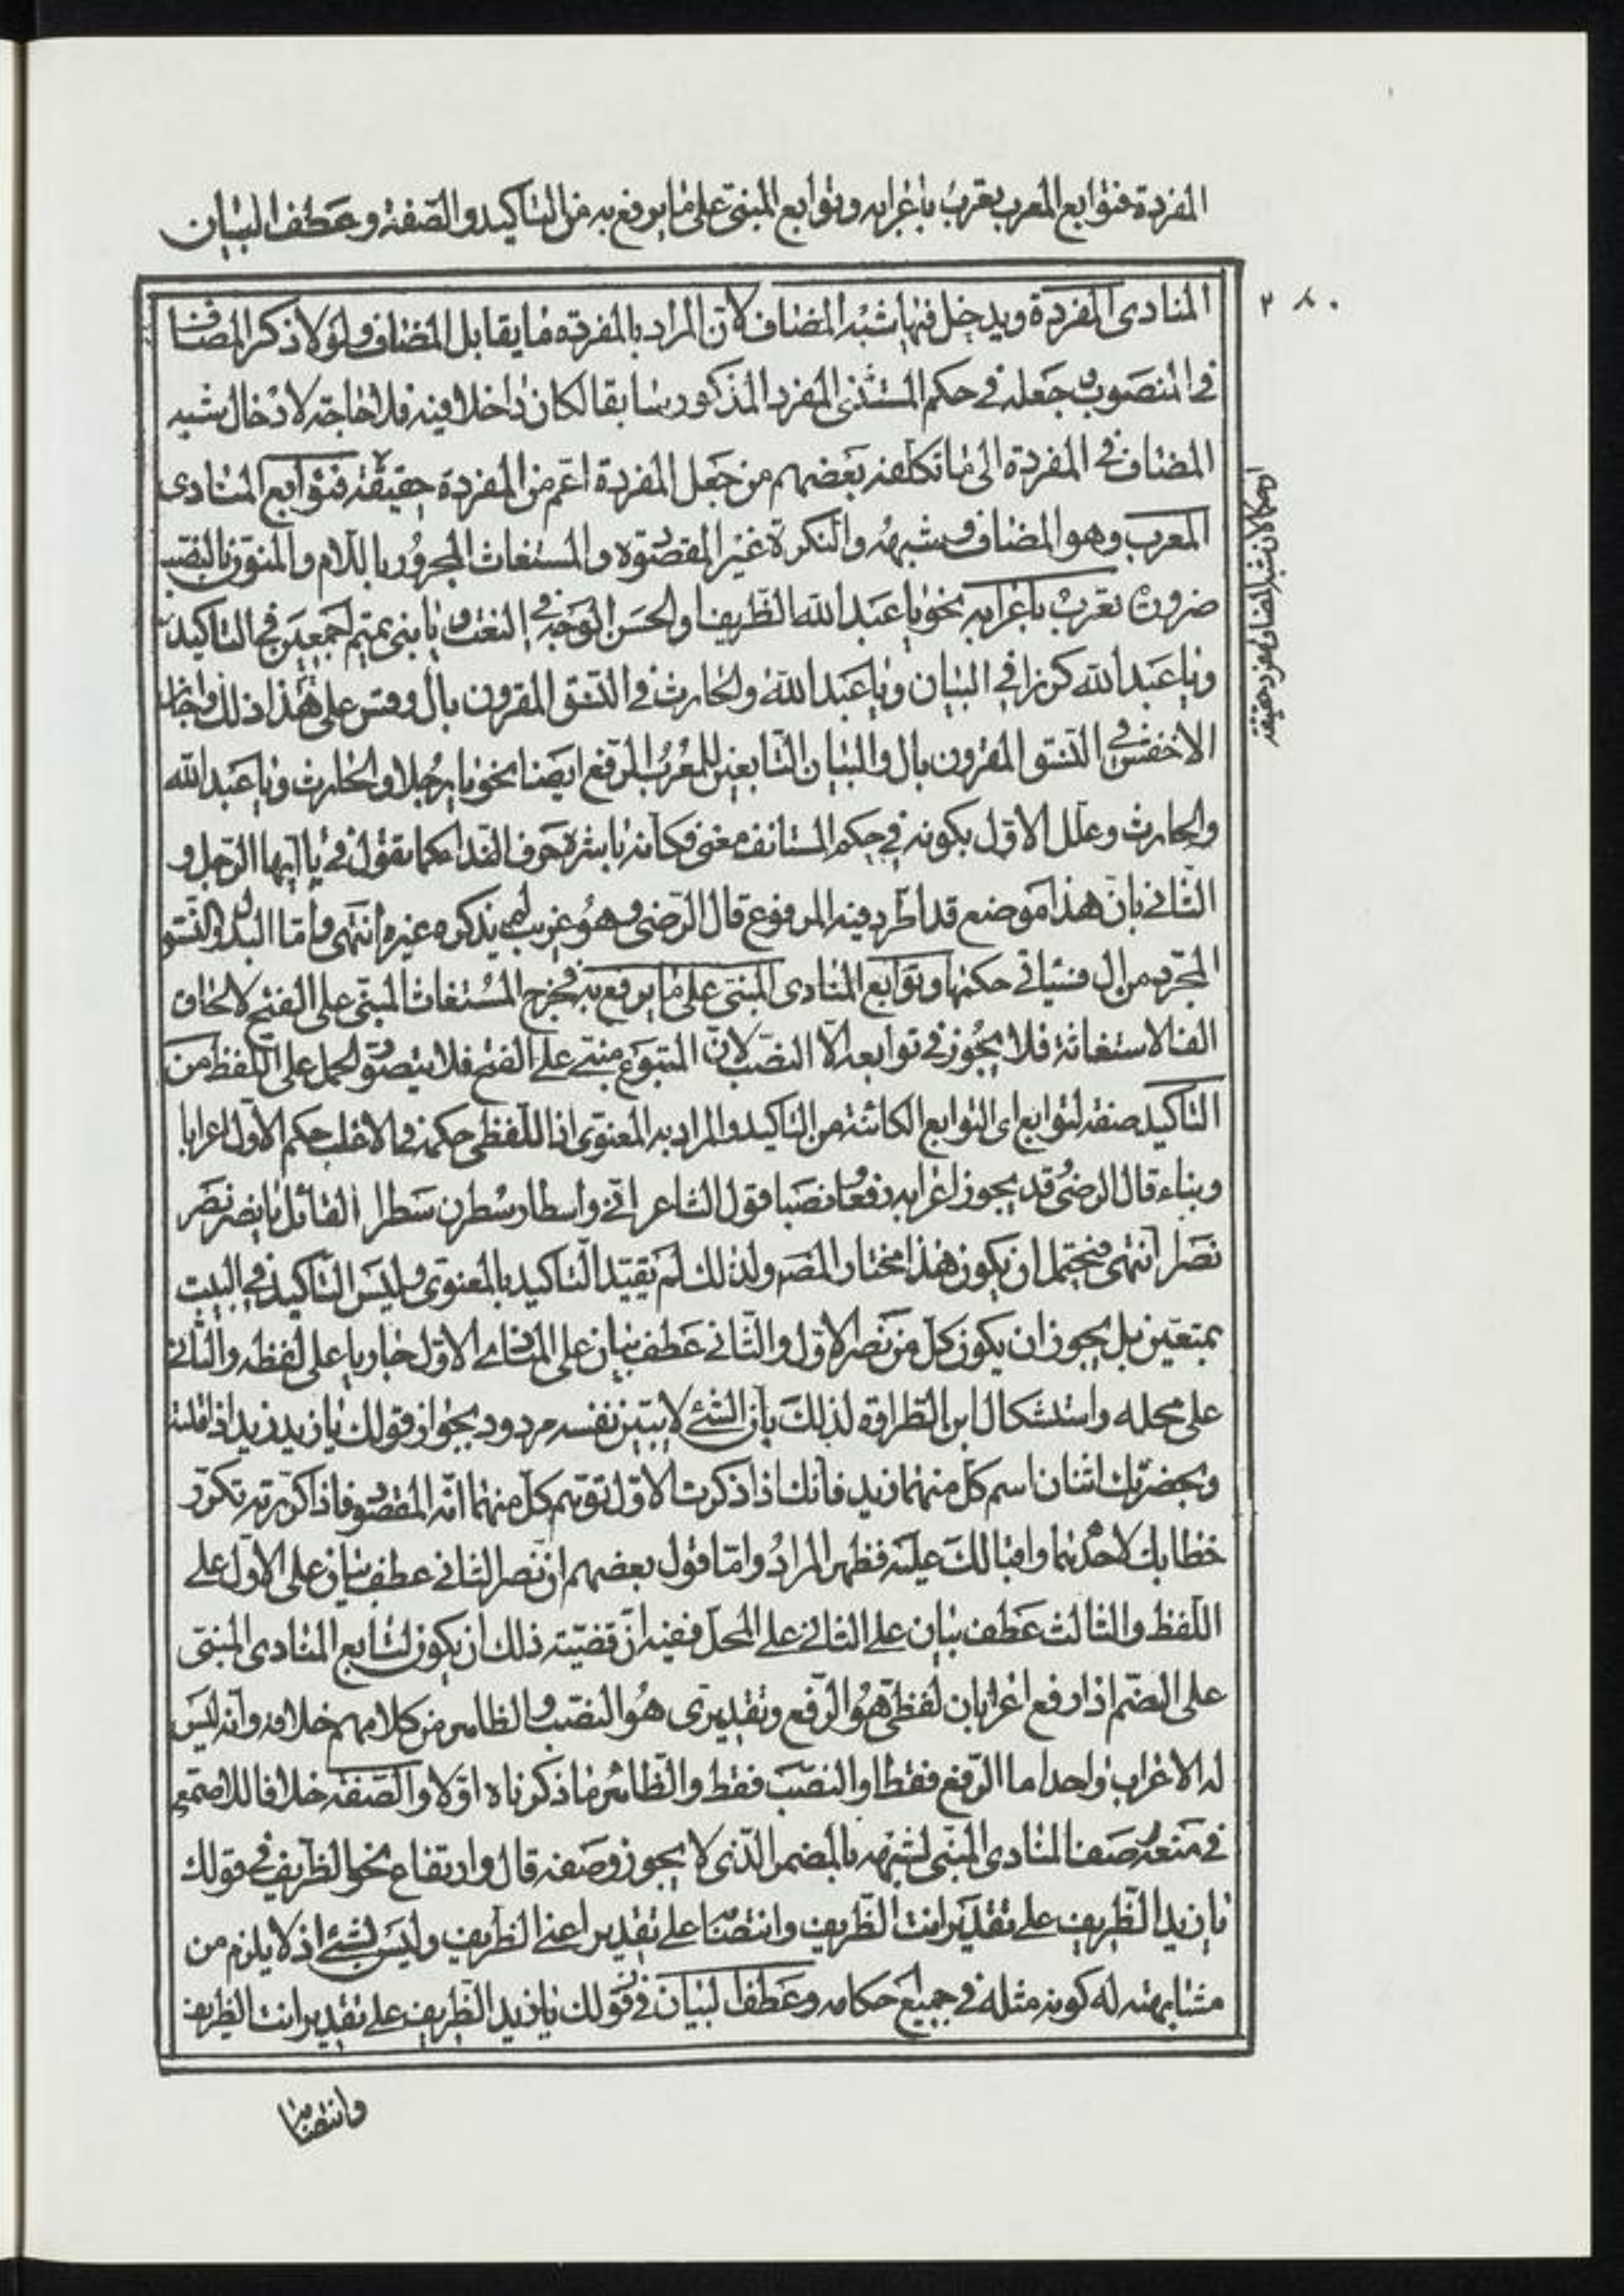 المفردة فتوابع المعرب تعرب باعرابه وتوابع المبنى على ما يرفع به من التاكيد والصفة وعطف البيان
٢٨٠
المنادى المفردة ويدخل فيها شبه المضاف لان المراد بالمفردة ما يقابل المضاف ولولا ذكر المضاف
فى المنصوب وجعله فى حكم المستثنى المفرد المذكور سابقا لكان داخلا فيه فلا حاجة لادخال شبه
المضاف فى المفردة الى ما تكلفه بعضهم من جعل المفردة اعم من المفردة حقيقة فتوابع المنادى
المعرب وهو المضاف وشبهه والنكرة غير المقصودة والمستغاث المجرور باللام والمنون بالنصب
ضرورة تعرب باعرابه نحو يا عبد الله الظريف والحسن الوجه فى النعت ويا بنى تميم اجمعين فى التاكيد
ويا عبد الله كرزا فى البيان ويا عبد الله والحارث فى النسق المقرون بال وقس على هذا ذلك واجاز
الاخفش فى النسق المقرون بال والبيان التابعين للمعرب الرفع ايضا نحو يا رجلا والحارث ويا عبد الله
والحارث وعلل الاول بكونه فى حكم المستانف معنى فكانه باشره حرف النداء كما تقول فى يا ايها الرجل و
الثانى بان هذا موضع قد اطرد فيه المرفوع قال الرضى وهو غريب لم يذكره غيره انتهى واما البدل والنسق
المجرد من ال فسياتى حكمها وتوابع المنادى المبنى على ما يرفع به فخرج المستغاث المبنى على الفتح لالحاق
الف الاستغاثة فلا يجوز فى توابعه الا النصب لان المتبوع مبنى على الفتح فلا يتصور الحمل على اللفظ من
التاكيد صفة لتوابع اى التوابع الكائنة من التاكيد والمراد به المعنوى اذ اللفظى حكمه فى الاغلب حكم الاول اعرابا
وبناء قال الرضى قد يجوز اعرابه رفعا ونصبا قول الشاعر انى واسطار سطرن سطرا لقائل يا نصر نصر
نصرا انتهى فيحتمل ان يكون هذا مختار المص ولذلك لم يقيد التاكيد بالمعنوى وليس التاكيد فى البيت
بمتعين بل يجوز ان يكون كل من نصر الاول والثانى عطف بيان على المنادى الاول جاريا على لفظه والثانى
على محله واستشكال ابن الطراوة لذلك بان الشئ لا يبين نفسه مردود بجواز قولك يا زيد زيد اذا قلته
وبحضرتك اثنان اسم كل منهما زيد فانك اذا ذكرت الاول توهم كل منهما انه المقصود فاذا كررته تكرر
خطابك لاحدهما واقبالك عليه فظهر المراد واما قول بعضهم ان نصر الثانى عطف بيان على الاول على
اللفظ والثالث عطف بيان على الثانى على المحل ففيه ان قضية ذلك ان يكون لتابع المنادى المبنى
على الضم اذا رفع اعرابان لفظى هو الرفع وتقديرى هو النصب والظاهر من كلامهم خلافه وانه ليس
له الا اعراب واحد اما الرفع فقط او النصب فقط والظاهر ما ذكرناه اولا والصفة خلافا للاصمعى
فى منعه وصف المنادى المبنى لشبهه بالمضمر الذى لا يجوز وصفه قال وارتفاع نحو الظريف فى قولك
يا زيد الظريف على تقدير انت الظريف وانتصابه على تقدير اعنى الظريف وليس بشئ اذ لا يلزم من
مشابهته له كونه مثله فى جميع احكامه وعطف البيان فى قولك يا زيد الظريف على تقدير انت الظريف
وانتصابه